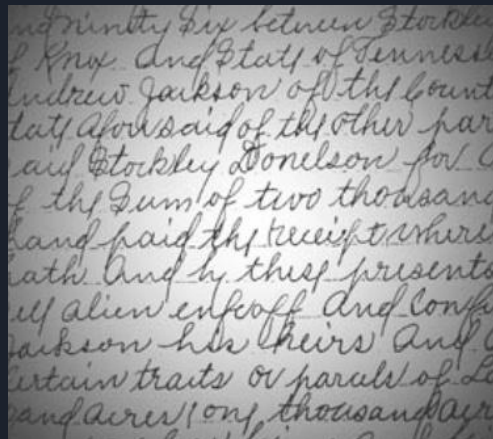 nd ninity Six between Stockley
f Knox and State of Tenness
Andrew Jackson of the Count
tate aforesaid of the other par
aid Stockley Donelson for
f the Sum of two thousand
hand paid the receipt where
hath and by these presents
ell alien enfeoff and Conf
Jackson his heirs and
Certain traits or parcels of La
sand acres (one thousand acr